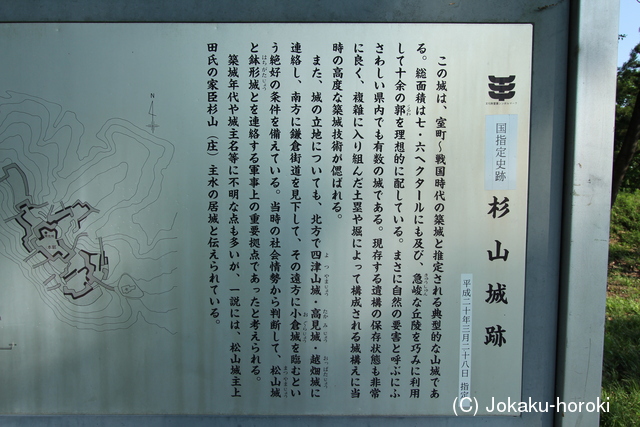 国指定史跡
杉山城跡
平成二十年三月二十八日 指定
この城は、室町~戦国時代の築城と推定される典型的な山城であ
る。総面積は七・六ヘクタールにも及び、急峻な丘陵を巧みに利用
して十余の郭を理想的に配している。まさに自然の要害と呼ぶにふ
さわしい県内でも有数の城である。現存する遺構の保存状態も非常
に良く、複雑に入り組んだ土塁や堀によって構成される城構えに当
時の高度な築城技術が偲ばれる。
また、城の立地についても、北方で四津山城・高見城・越畑城に
連絡し、南方に鎌倉街道を見下して、その遠方に小倉城を臨むとい
う絶好の条件を備えている。当時の社会情勢から判断して、松山城
と鉢形城とを連絡する軍事上の重要拠点であったと考えられる。
築城年代や城主名等に不明な点も多いが、一説には、松山城主上
田氏の家臣杉山(庄)主水の居城と伝えられている。
N
(C) Jokaku-horoki